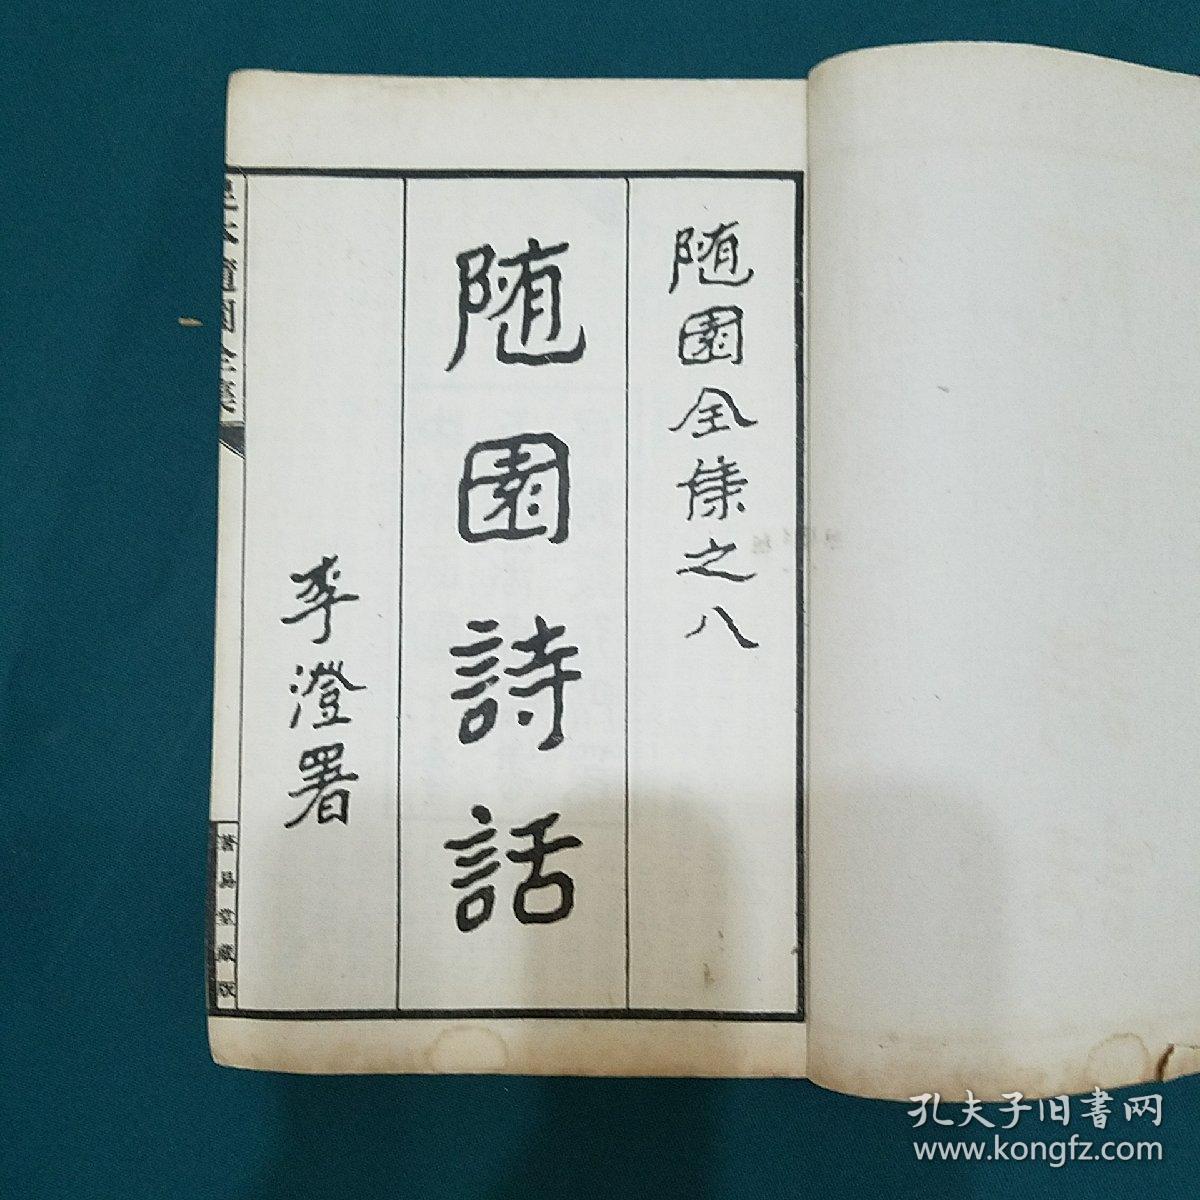 随園全集之八
随園詩話
李澄署
隨園全集
著易堂藏版
孔夫子旧書网
www.kongfz.com